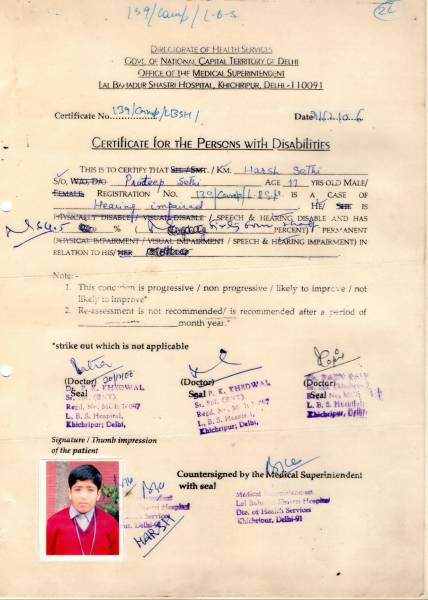 139/Camp/L.B.S
DIRECTORATE OF HEALTH SERVICES
GOVT. OF NATIONAL CAPITAL TERRITORY OF DELHI
OFFICE OF THE MEDICAL SUPERINTENDENT
LAL BAHADUR SHASTRI HOSPITAL, KHICHRIPUR, DELHI-110091
Certificate No. 139/Camp/LBSH/ Date
CERTIFICATE FOR THE PERSONS WITH DISABILITIES
THIS IS TO CERTIFY THAT SH./SMT./KM. Harsh Sethi
S/O, W/O, D/O Pradeep Sethi AGE YRS OLD MALE/
FEMALE REGISTRATION NO. 139/Camp/L.B.S.H IS A CASE OF
Hearing impaired HE/ SHE IS
PHYSICALLY DISABLE/ VISUAL DISABLE / SPEECH & HEARING DISABLE AND HAS
% ( PERCENT) PERMANENT
(PHYSICAL IMPAIRMENT / VISUAL IMPAIRMENT / SPEECH & HEARING IMPAIRMENT) IN
RELATION TO HIS/HER
Note:-
1. This condition is progressive / non progressive / likely to improve / not
likely to improve*
2. Re-assessment is not recommended/ is recommended after a period of
month year.*
*strike out which is not applicable
(Doctor) (Doctor) (Doctor)
Seal Seal Seal
Dr. P. K. KHEDWAL
Sr. (ENT)
Regd. No.
L. B. S. Hospital,
Khichripur, Delhi,
P. K. KHEDWAL
Sr. (ENT)
Regd. No.
L. B. S. Hospital,
Khichripur, Delhi,
L. B. S. Hospital,
Khichripur, Delhi,
Signature / Thumb impression
of the patient
Countersigned by the Medical Superintendent
with seal
Medical Superintendent
Lal Bahadur Shastri Hospital
Dte. of Health Services
Khichripur, Delhi-91
Hospital
Services
Delhi-91
HARSH